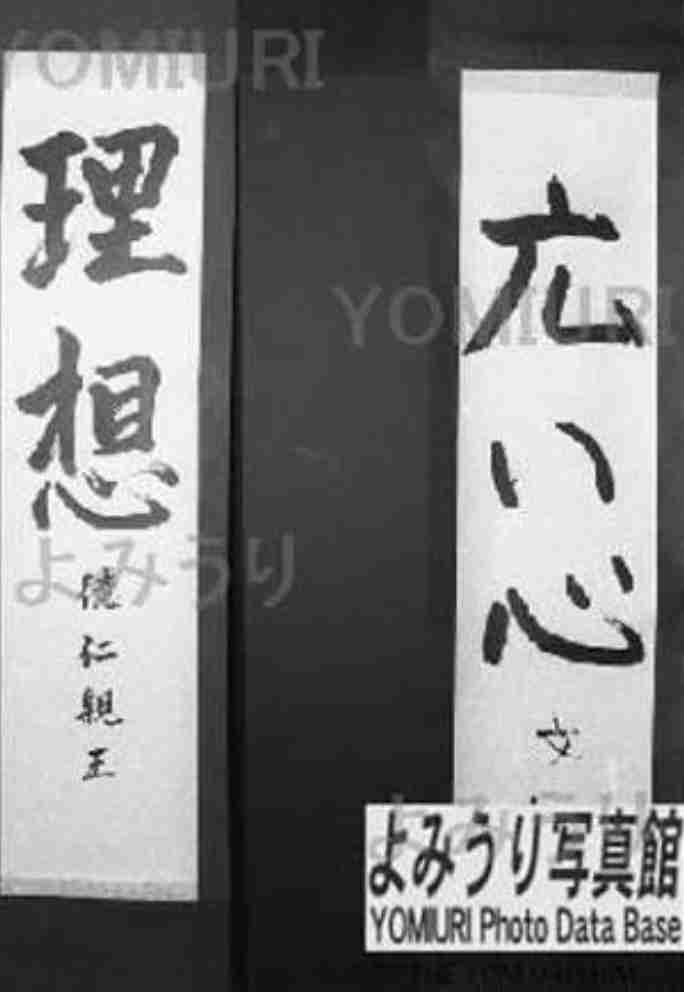 広い心
文
理想
徳仁親王
YOMIURI
YOMIURI
よみうり
よみうり写真館
YOMIURI Photo Data Base